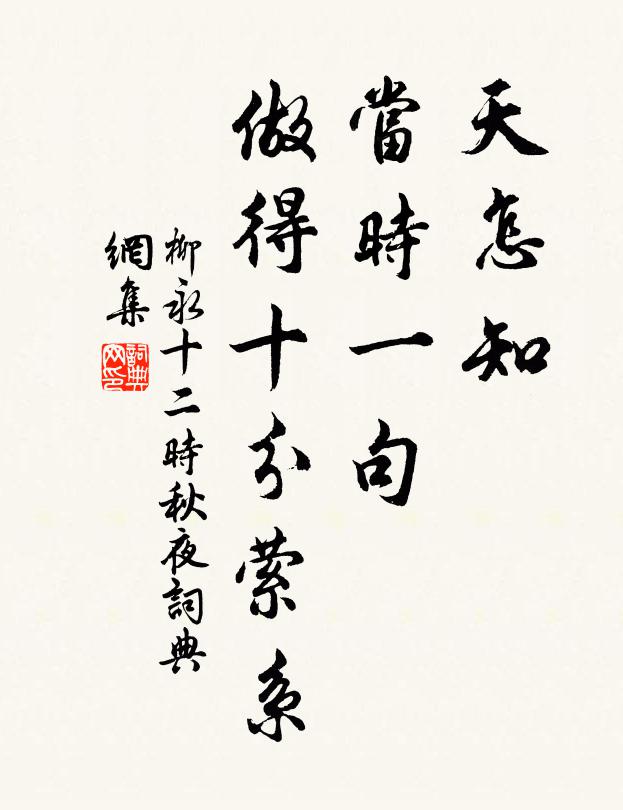 天怎知
當時一句
做得十分縈系
柳永十二時秋夜詞典
網集
詞典網印